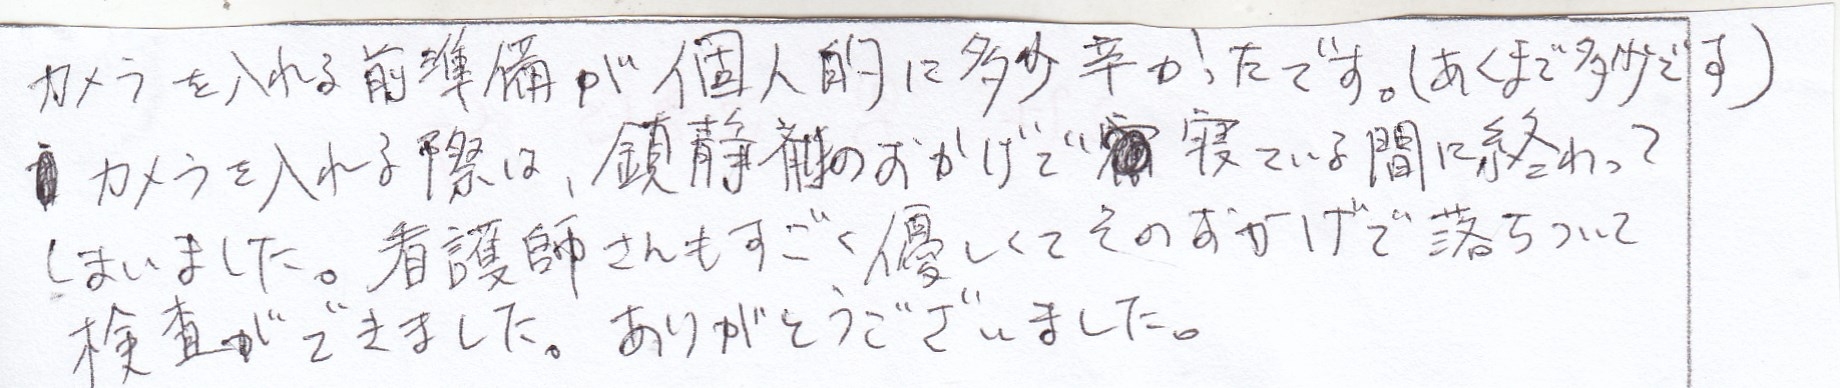 カメラを入れる前準備が個人的に多少辛かったです。(あくまで多少です)
カメラを入れる際は、鎮静剤のおかげで寝ている間に終わって
しまいました。看護師さんもすごく優しくてそのおかげで落ちついて
検査ができました。ありがとうございました。